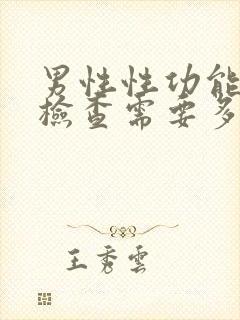 男性性功能
檢查需要多
王秀雲